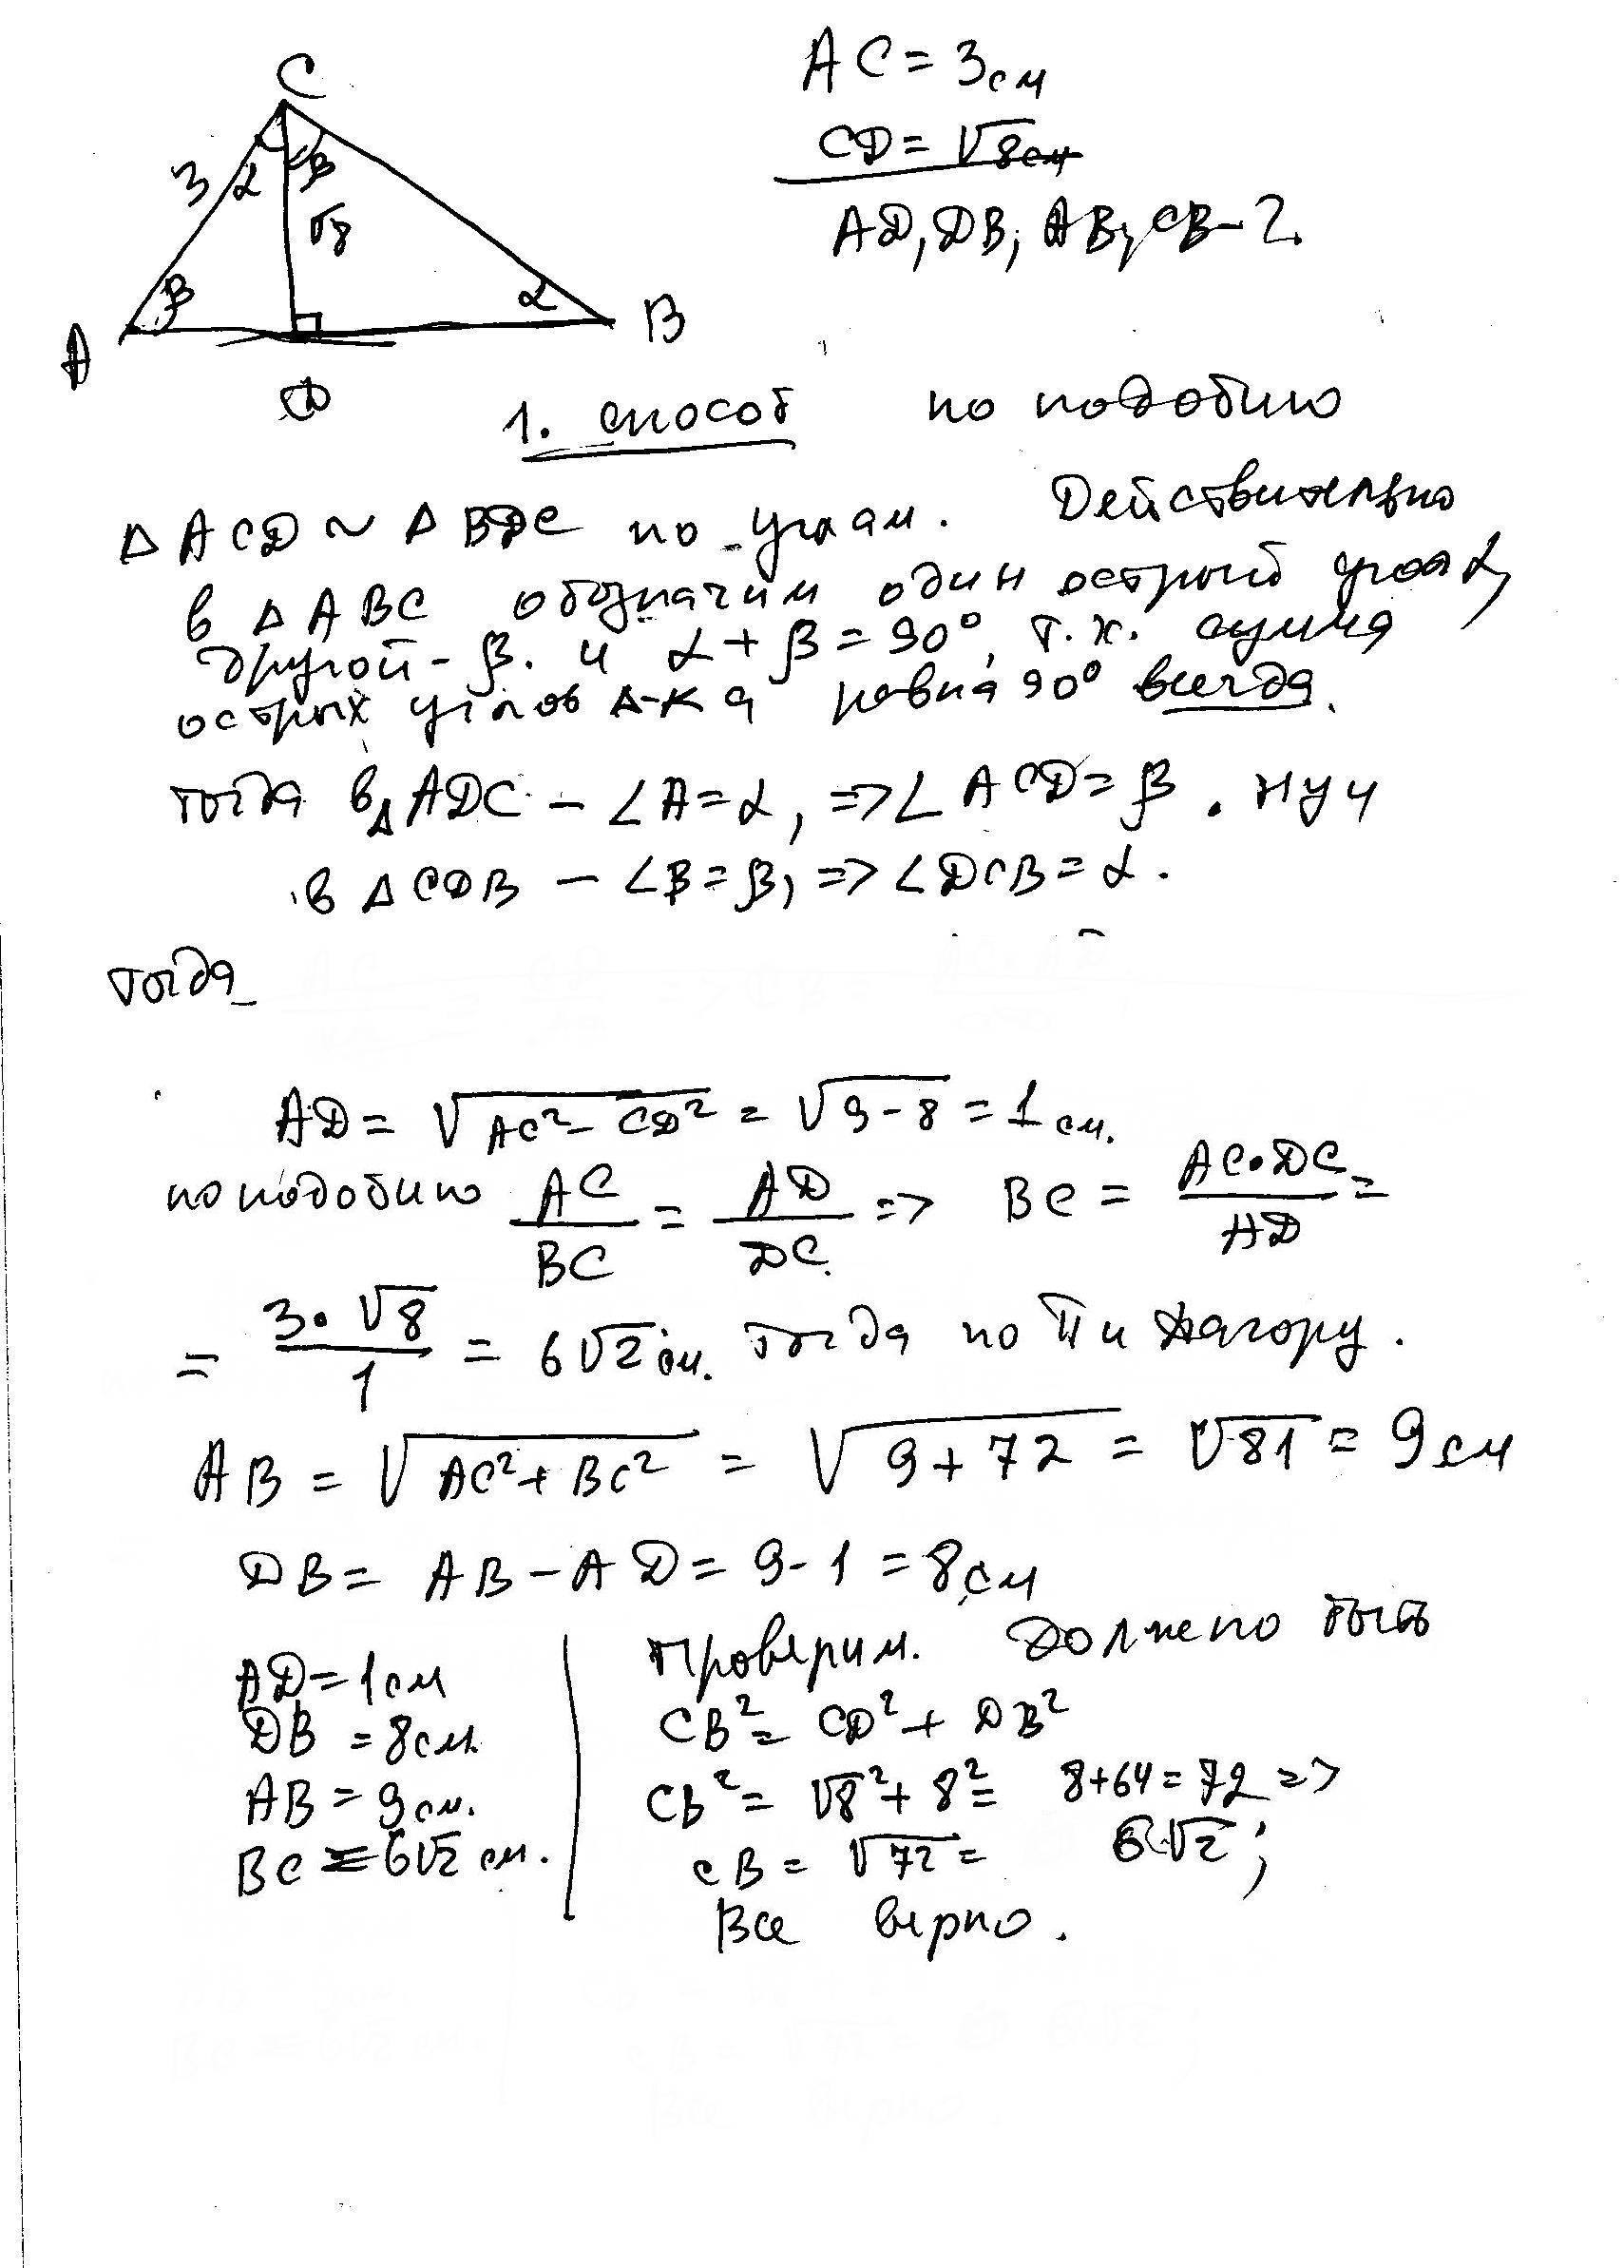 C
AC = 3см
CD = √8см
AD, DB, AB, CB - ?
3 α β
√8
β α
A B
D
1. способ по подобию
Δ ACD ~ Δ BDC по углам. Действительно
в Δ ABC обозначим один острый угол α,
другой - β. и α + β = 90°, т.к. сумма
острых углов Δ-ка равна 90° всегда.
тогда в Δ ADC - ∠A = α, => ∠ACD = β. ну и
в Δ CDB - ∠B = β, => ∠DCB = α.
тогда
AD = √(AC² - CD²) = √(9 - 8) = 1 см.
по подобию AC/BC = AD/DC => BC = AC·DC/AD =
= 3·√8/1 = 6√2 см. тогда по Пифагору.
AB = √(AC² + BC²) = √(9 + 72) = √81 = 9 см
DB = AB - AD = 9 - 1 = 8 см
AD = 1 см
DB = 8 см.
AB = 9 см.
BC = 6√2 см.
Проверим. Должно быть
CB² = CD² + DB²
CB² = √8² + 8² = 8 + 64 = 72 =>
CB = √72 = 6√2;
Все верно.